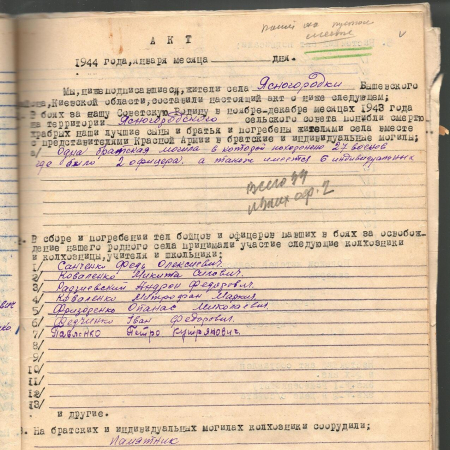 нашей на
А К Т
1944 года, января месяца дня.
Мы, нижеподписавшиеся, жители села Ясногородки Вышевского
района, Киевской области, составили настоящий акт о ниже следующем;
В боях за нашу Советскую Родину в ноябре-декабре месяцах 1943 года
территории Ясногородского сельского совета погибли смертю
храбрых наши лучшие сыны и братья и погребены жителями села вместе
с представителями Красной Армии в братские и индивидуальные могилы;
а/ Одна братская могила в которой похоронено 27 воинов
где было 2 офицера, а также имеется 6 индивидуальных
Всего 34
из них оф. 2
2. В сборе и погребении тел бойцов и офицеров павших в боях за освобож-
дение нашего родного села принимали участие следующие колхозники
и колхозницы, учителя и школьники;
1/ Санченко Федь Олексиевич.
2/ Коваленко Никита Силович.
3/ Радзиевский Андрей Федорович.
4/ Коваленко Митрофан
5/ Опанас Миколаевич
6/ Федченко Іван Федорович.
7/ Павленко Петро
8/
9/
10/
11/
12/
13/
и другие.
3. На братских и индивидуальных могилах колхозники соорудили;
Памятник